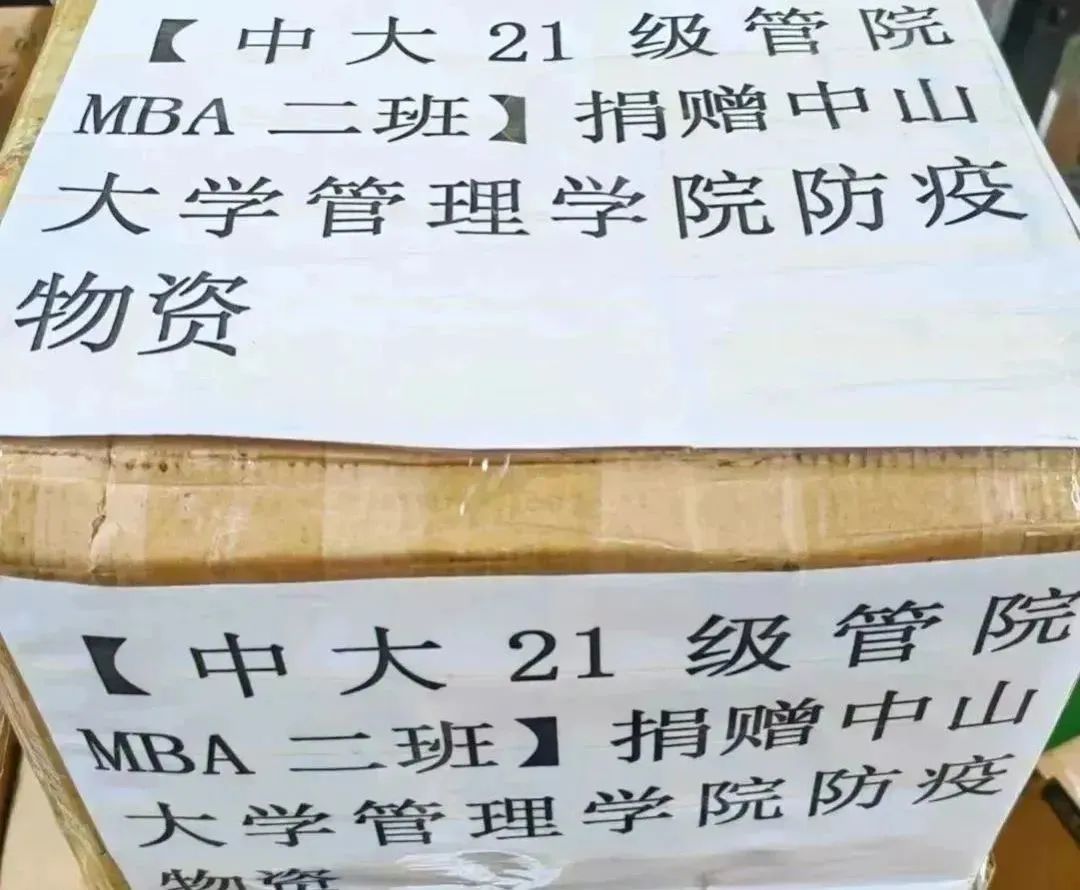 【中大21级管院
MBA二班】捐赠中山
大学管理学院防疫
物资
【中大21级管院
MBA二班】捐赠中山
大学管理学院防疫
物资